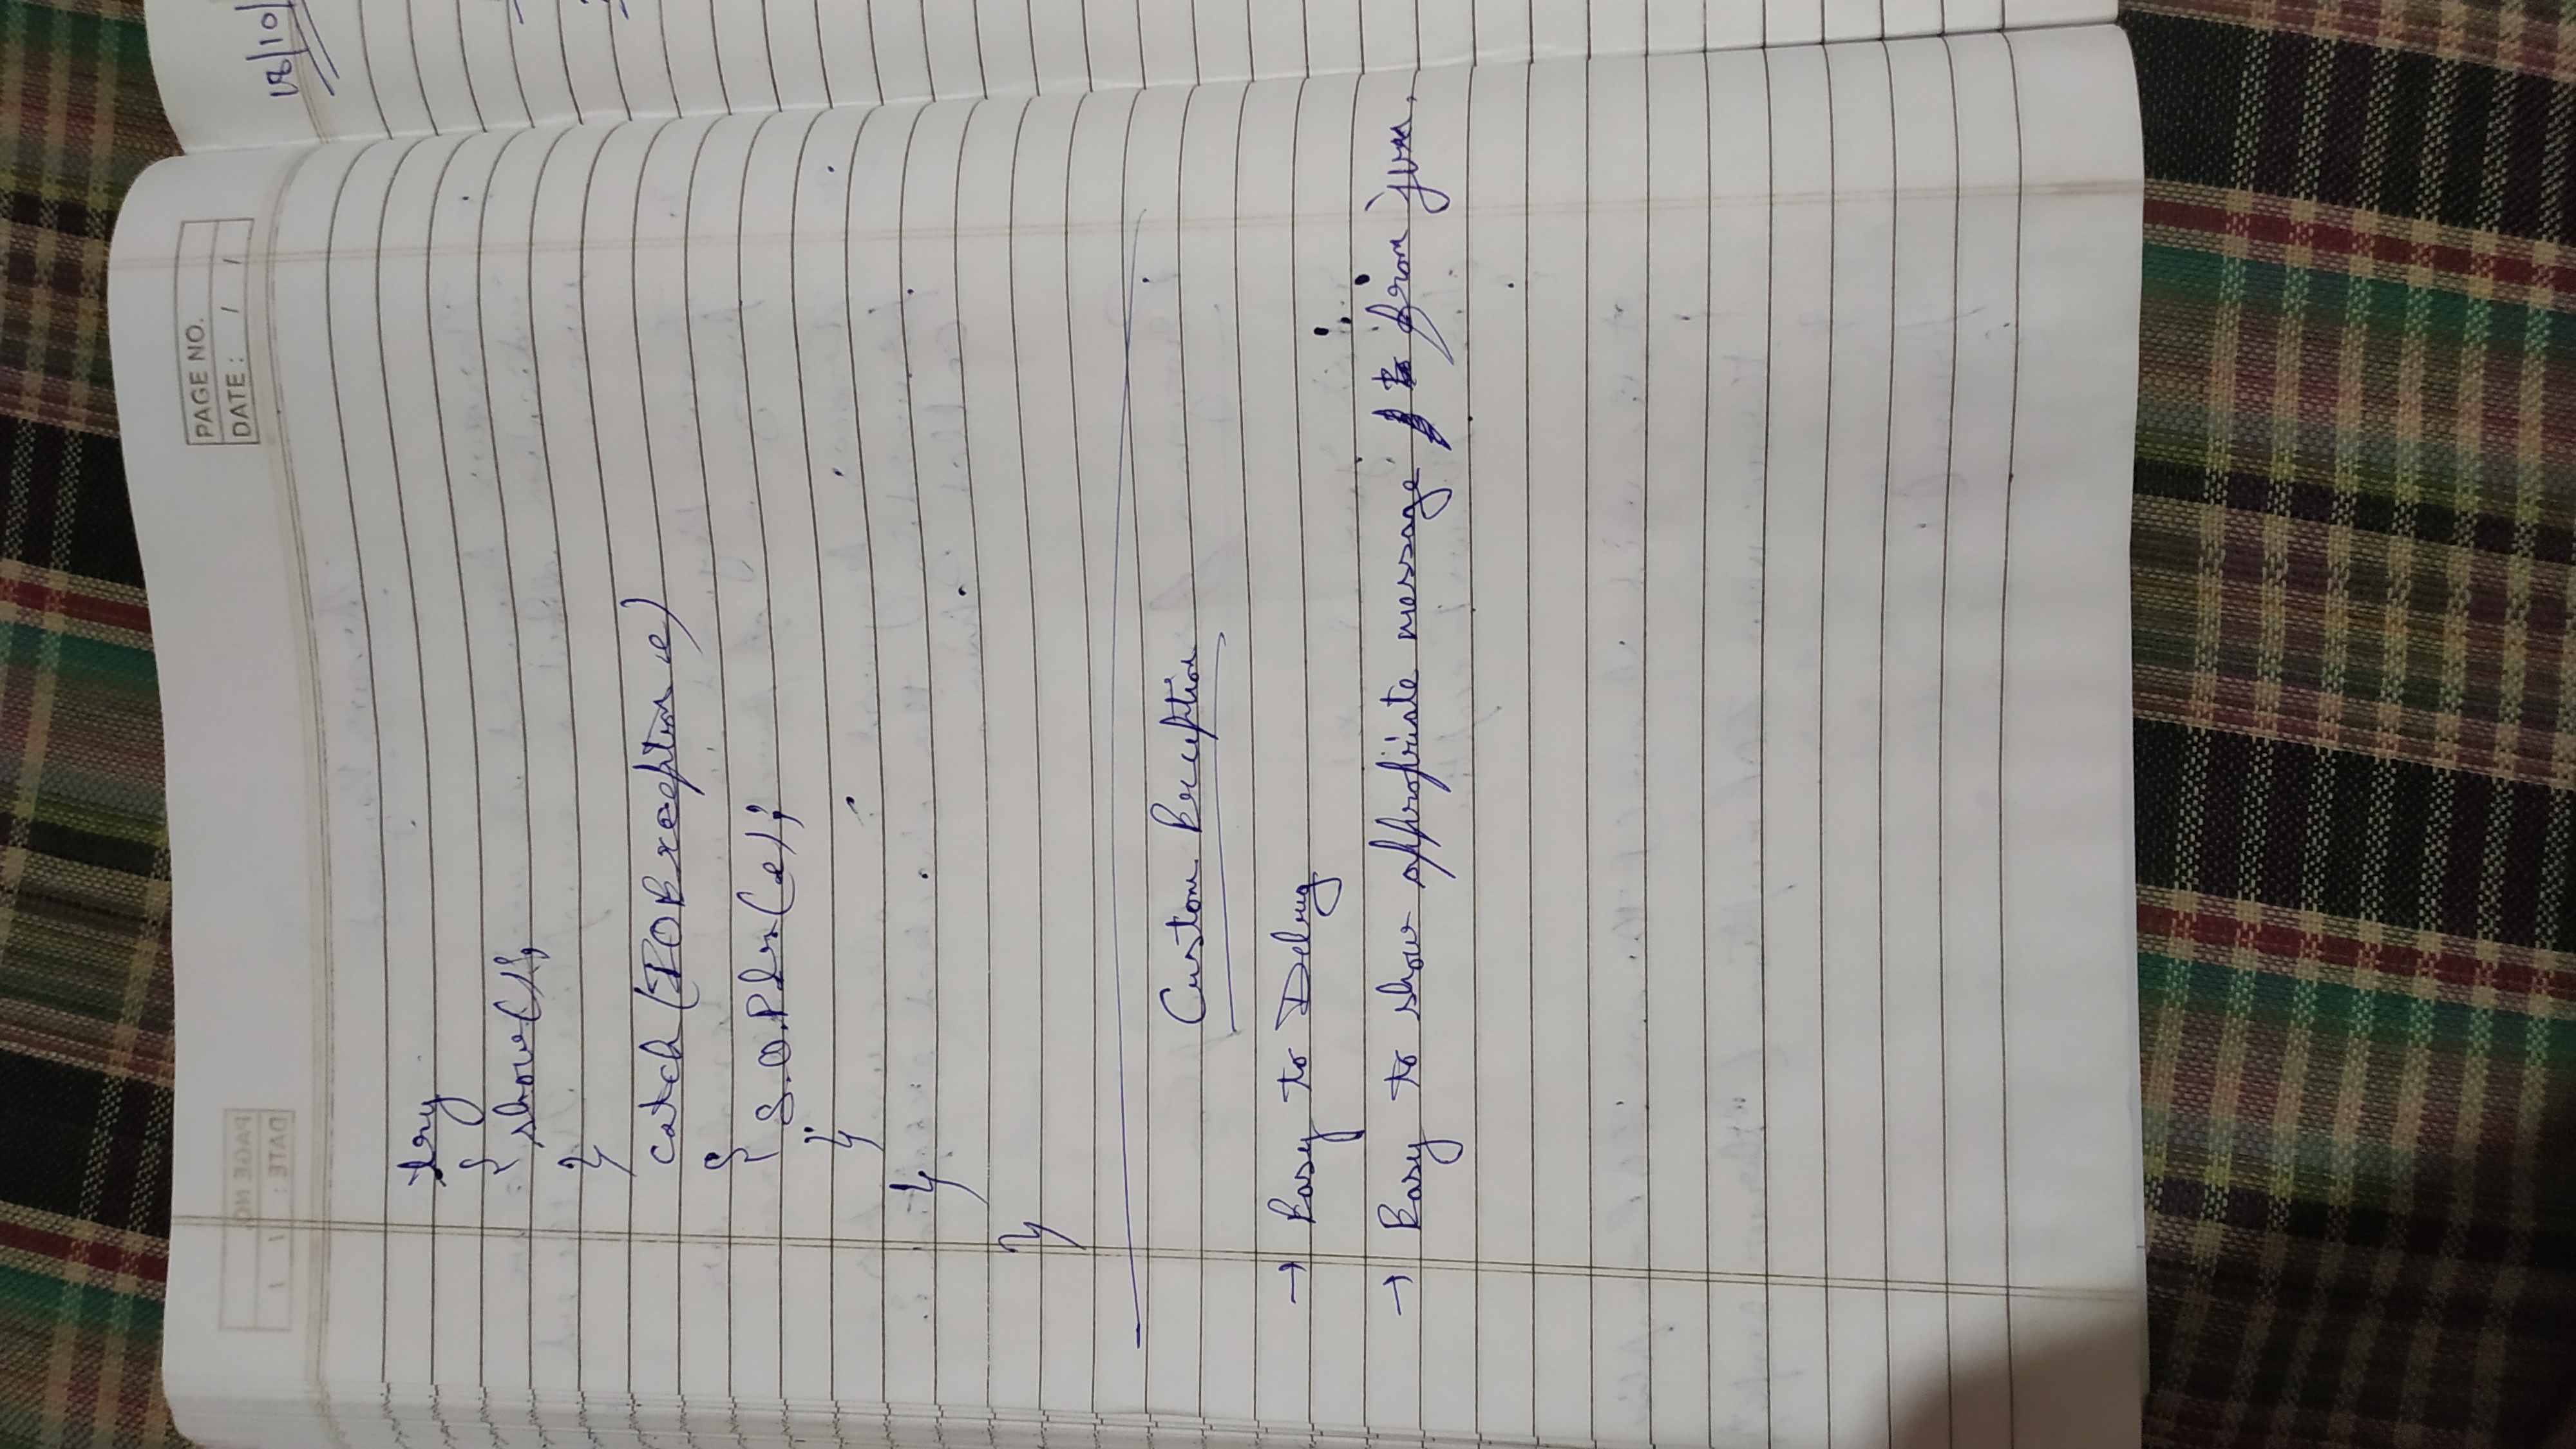 18/10
PAGE NO.
DATE: / /
try
{ show();
}
catch(IOException e)
{
S.O.Pln(e);
}
}
}
Custom Exception
→ Easy to Debug
→ Easy to show appropriate message from jvm.